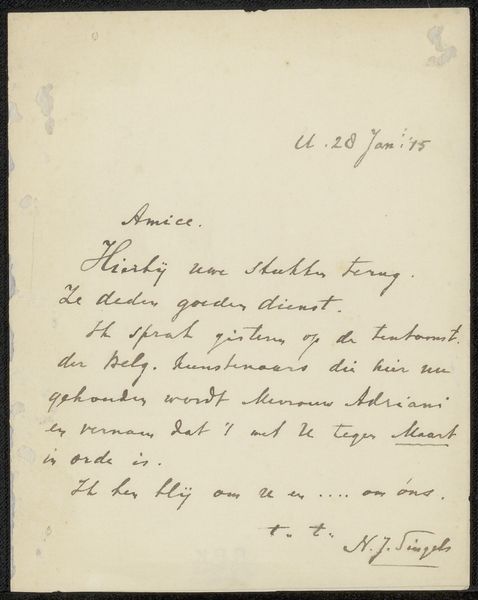 U. 28 Jan: '15
Amice.
Hierbij uwe stukken terug.
Ze deden goeden dienst.
Ik sprak gisteren op de tentoonst.
der Belg. Kunstenaars die hier nu
gehouden wordt Mevrouw Adriani
en vernam dat 't met U tegen Maart
in orde is.
Ik ben blij om U en .... om óns.
t. t.
N. J. Singels